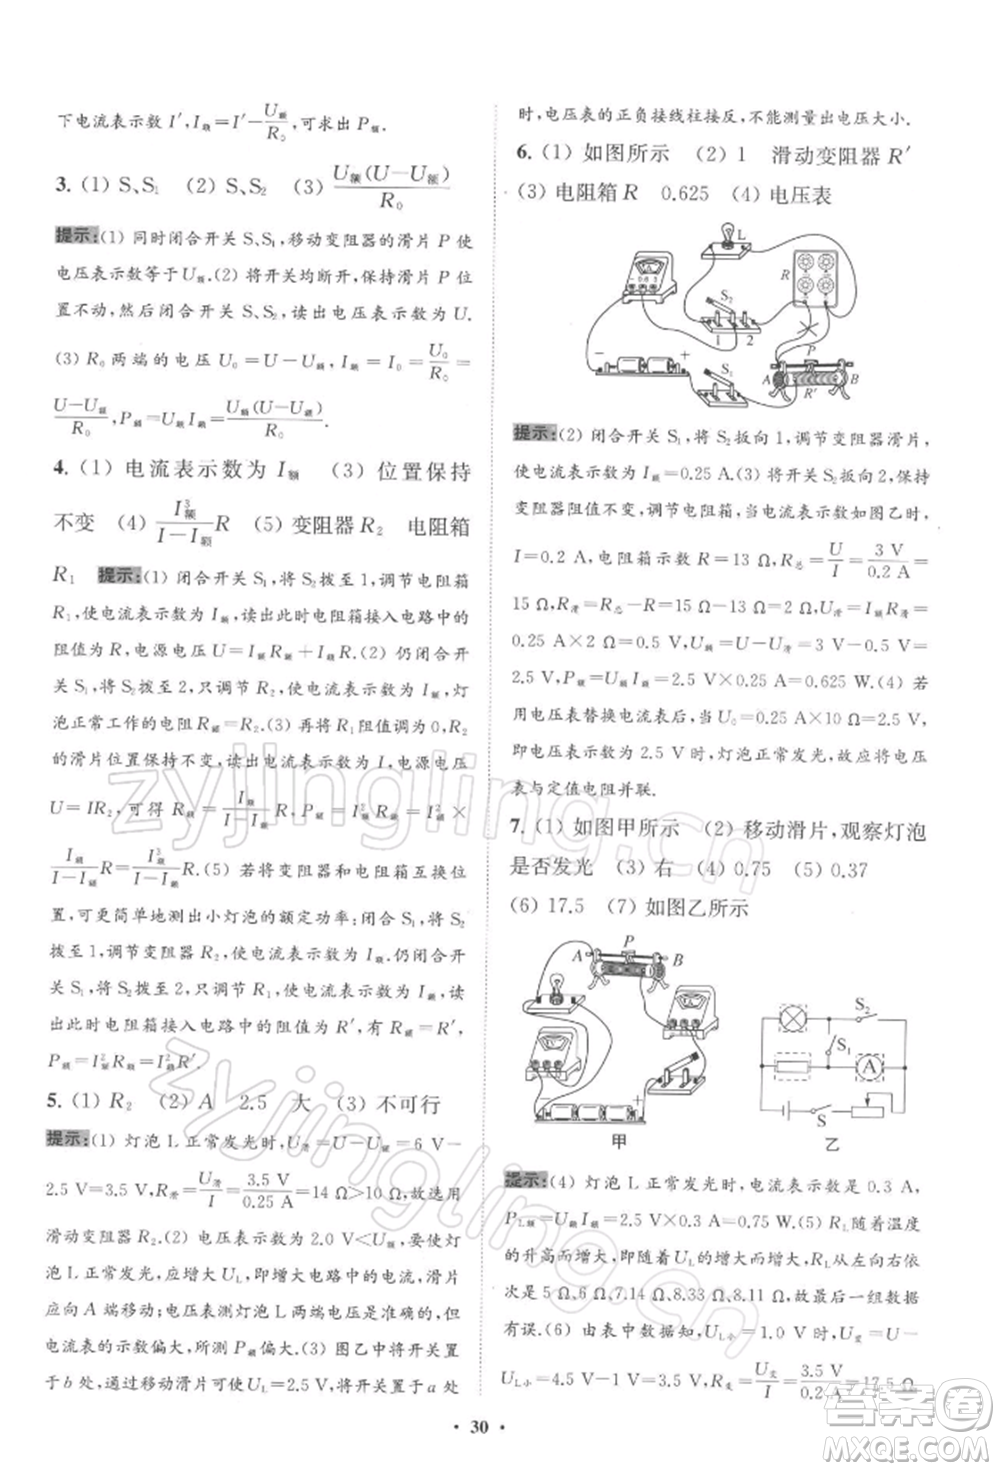 下电流表示数 I′,I额=I′-U额/R₀,可求出 P额.
3. (1) S、S₁ (2) S、S₂ (3) U额(U-U额)/R₀
提示:(1) 同时闭合开关 S、S₁,移动变阻器的滑片 P 使
电压表示数等于 U额.(2) 将开关均断开,保持滑片 P 位
置不动,然后再闭合开关 S、S₂,读出电压表的示数为 U.
(3) R₀ 两端的电压 U₀=U-U额,I额=I₀=U₀/R₀=
(U-U额)/R₀,P额=U额I额=U额(U-U额)/R₀.
4. (1) 电流表示数为 I额 (3) 位置保持
不变 (4) I额³/(I-I额)R (5) 变阻器 R₂ 电阻箱
R₁ 提示:(1) 闭合开关 S₁,将 S₂ 拨至 1,调节电阻箱
R₁,使电流表示数为 I额,读出此时电阻箱接入电路中的
阻值为 R,电源电压 U=I额R额+I额R.(2) 仍闭合开
关 S₁,将 S₂ 拨至 2,只调节 R₂,使电流表示数为 I额,灯
泡正常工作的电阻 R额=R₂.(3) 再将 R₁ 阻值调为 0,R₂
的滑片位置保持不变,读出电流表的示数为 I,电源电压
U=IR₂,可得 R额=I额/(I-I额)R.(4) P额=I额²R额=I额²×
I额/(I-I额)R=I额³/(I-I额)R.(5) 若将变阻器和电阻箱互换位
置,可更简单地测出小灯泡的额定功率:闭合开关 S₁,将 S₂
拨至 1,调节变阻器 R₂,使电流表示数为 I额.仍闭合开关
S₁,将 S₂ 拨至 2,只调节 R₁,使电流表示数为 I额,读
出此时电阻箱接入电路中的阻值为 R′,有 R额=R′,
P额=I额²R额=I额²R′.
5. (1) R₂ (2) A 2.5 大 (3) 不可行
提示:(1) 灯泡 L 正常发光时,U滑=U-U额=6 V-
2.5 V=3.5 V,R滑=U滑/I额=3.5 V/0.25 A=14 Ω>10 Ω,故选用
滑动变阻器 R₂.(2) 电压表示数为 2.0 V<U额,要使灯
泡 L 正常发光,应增大 U_L,即增大电路中的电流,滑片
应向 A 端移动;电压表测灯泡 L 两端电压是准确的,但电流
表的示数偏大,所测 P额偏大.(3) 图乙中将开关置
于 b 处,通过移动滑片可使 U_L=2.5 V,将开关置于 a 处
时,电压表的正负接线柱接反,不能测量出电压大小.
6. (1) 如图所示 (2) 1 滑动变阻器 R′
(3) 电阻箱 R 0.625 (4) 电压表
L
R
S₂
1 2
− +
S₁
A P B
R′
提示:(2) 闭合开关 S₁,将 S₂ 扳向 1,调节变阻器滑片,
使灯泡正常发光,电流为 I额=0.25 A.(3) 将开关 S₂ 扳向 2,保持
变阻器阻值不变,调节电阻箱,当电流表示数如图乙时,
I=0.2 A,电阻箱示数 R=13 Ω,R总=U/I=3 V/0.2 A=
15 Ω,R滑=R总-R=15 Ω-13 Ω=2 Ω,U滑=I额R滑=
0.25 A×2 Ω=0.5 V,U额=U-U滑=3 V-0.5 V=
2.5 V,P额=U额I额=2.5 V×0.25 A=0.625 W.(4) 若
用电压表替换电流表后,当 U₀=0.25 A×10 Ω=2.5 V,
即电压表示数为 2.5 V 时,灯泡正常发光,故应将电压
表与定值电阻并联.
7. (1) 如图甲所示 (2) 移动滑片,观察灯泡
是否发光 (3) 右 (4) 0.75 (5) 0.37
(6) 17.5 (7) 如图乙所示
A P B
− +
甲
S₂
S₁
A
S
乙
提示:(4) 灯泡 L 正常发光时,电流表示数是 0.3 A,
P_L额=U额I额=2.5 V×0.3 A=0.75 W.(5) R_L 随着温度
的升高而增大,随 U_L 的增大而增大,所以从左次依次
为 5 Ω、6 Ω、7.14 Ω、8.33 Ω、8.11 Ω,故最后一组数据
有误.(6) 由表中数据知,U_L小=1.0 V 时,U变=U-
U_L小=4.5 V-1 V=3.5 V,R变=U变/I=3.5 V/0.2 A=17.5 Ω
• 30 •
zyjingling.cn
zyjingling.cn
答案圈
MXQE.COM